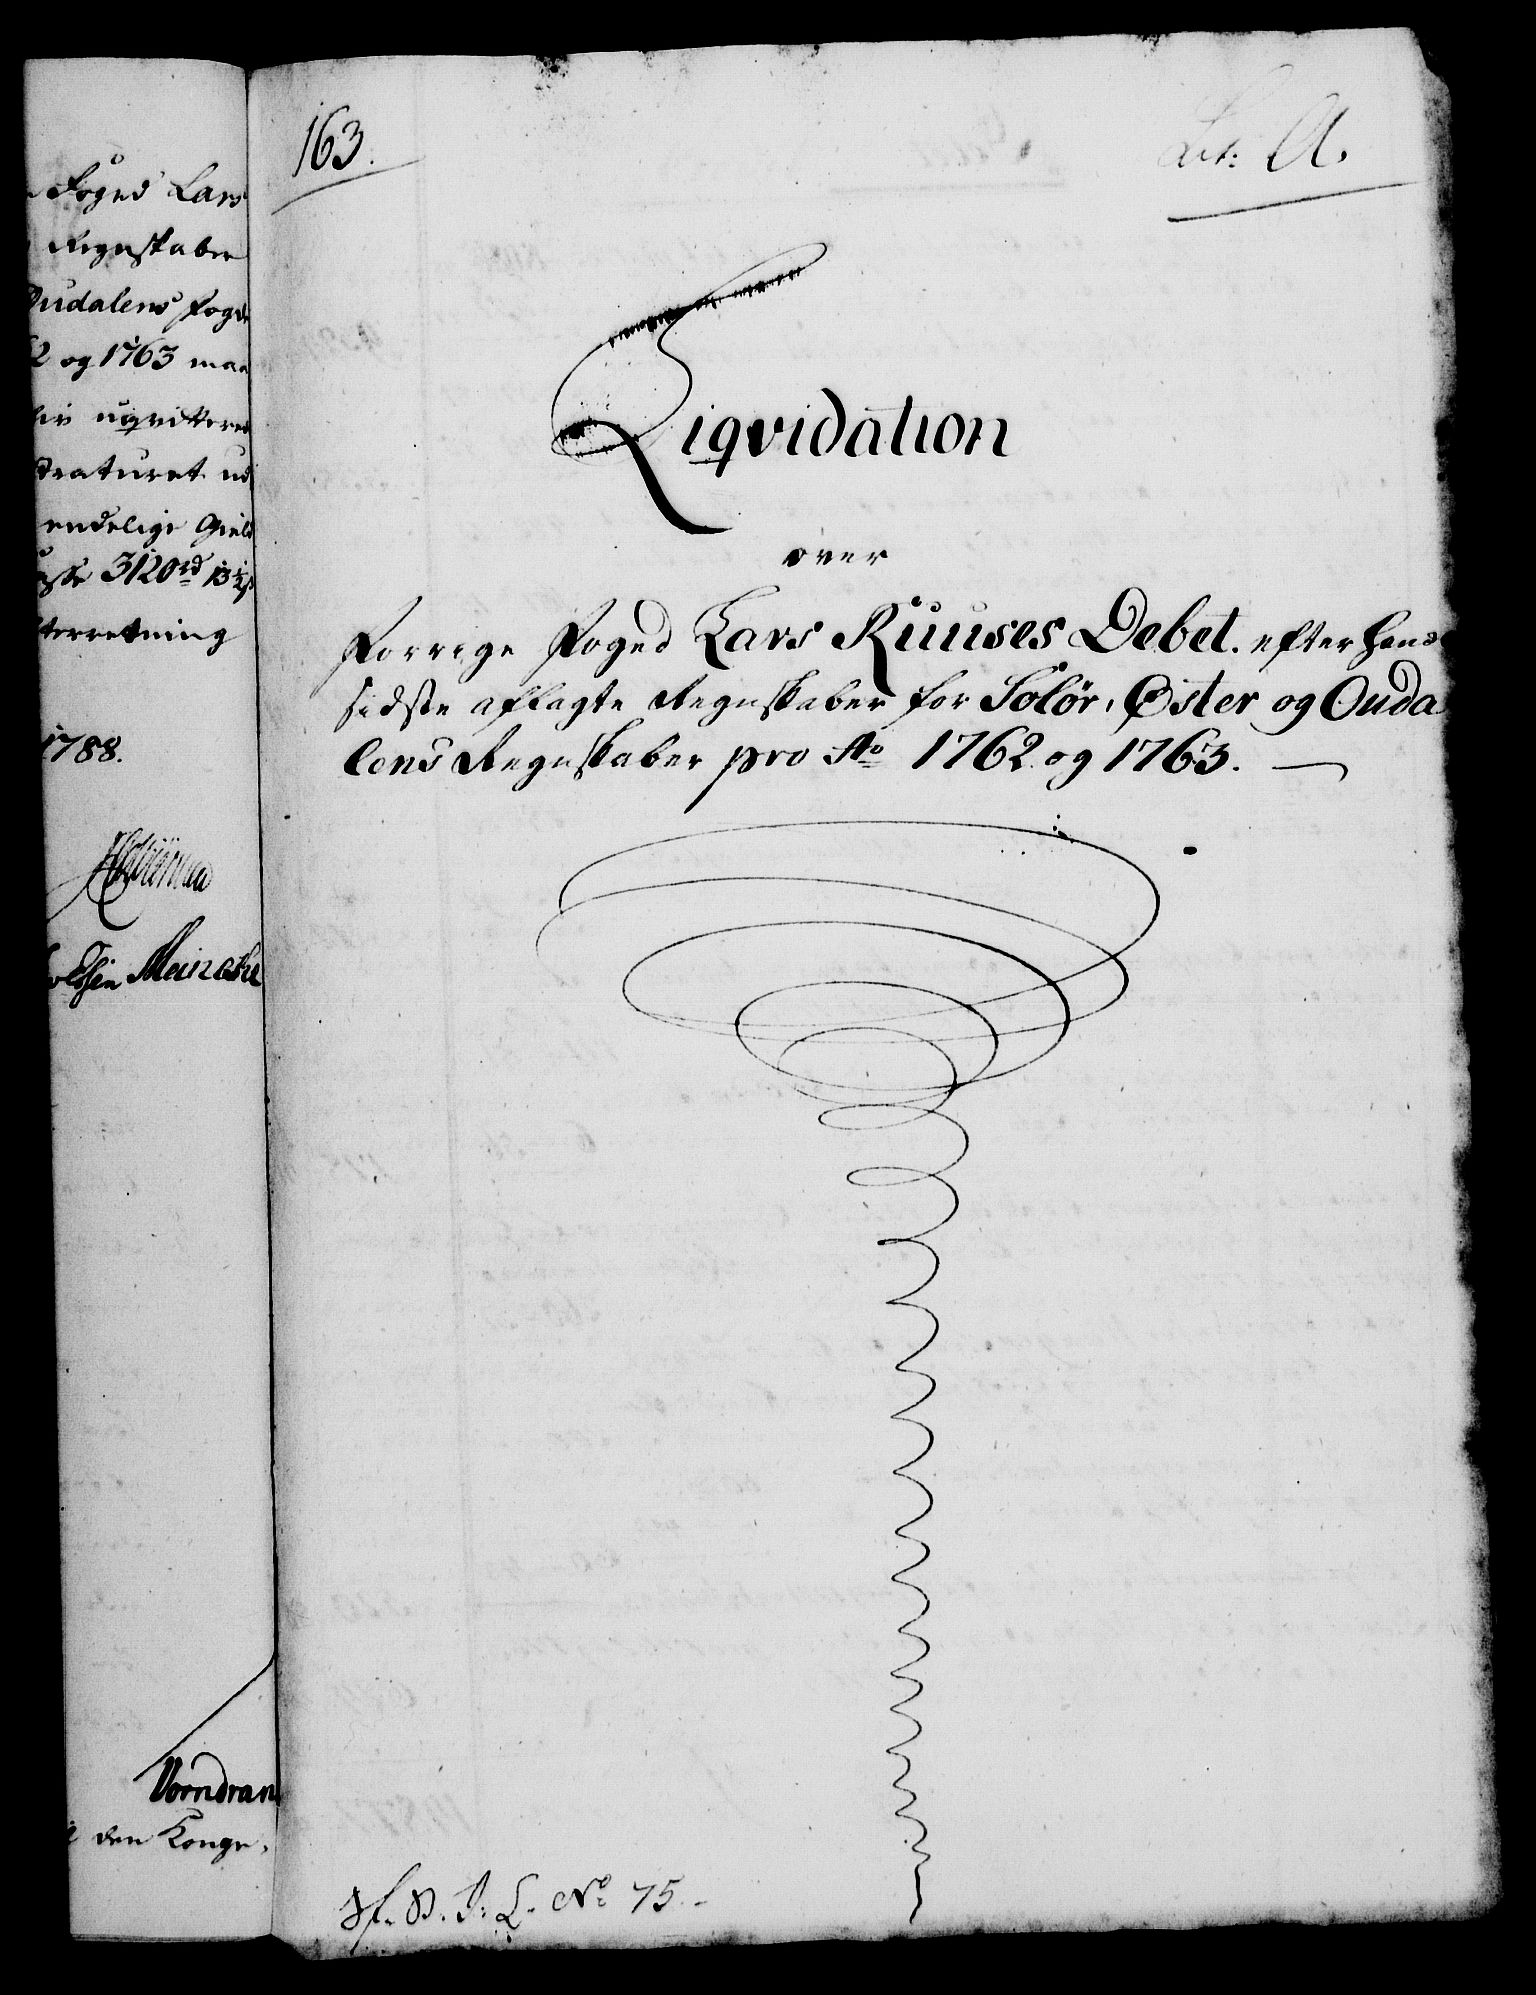 Foged Lars
Regnskaber
Oudalens Fogde
og 1763 maa
uqvitteret
endelige Gield
3120rd 13½s
terretning
1788.
Meincke
Vorndran
den Konge.
163.
Lit: A.
Liqvidation
over
Forrige Foged Lars Ruuses Debet. efter hans
sidste aflagte Regnskaber for Solør, Øster og Ouda
lens Regnskaber pro Ao 1762. og 1763.
No 75.